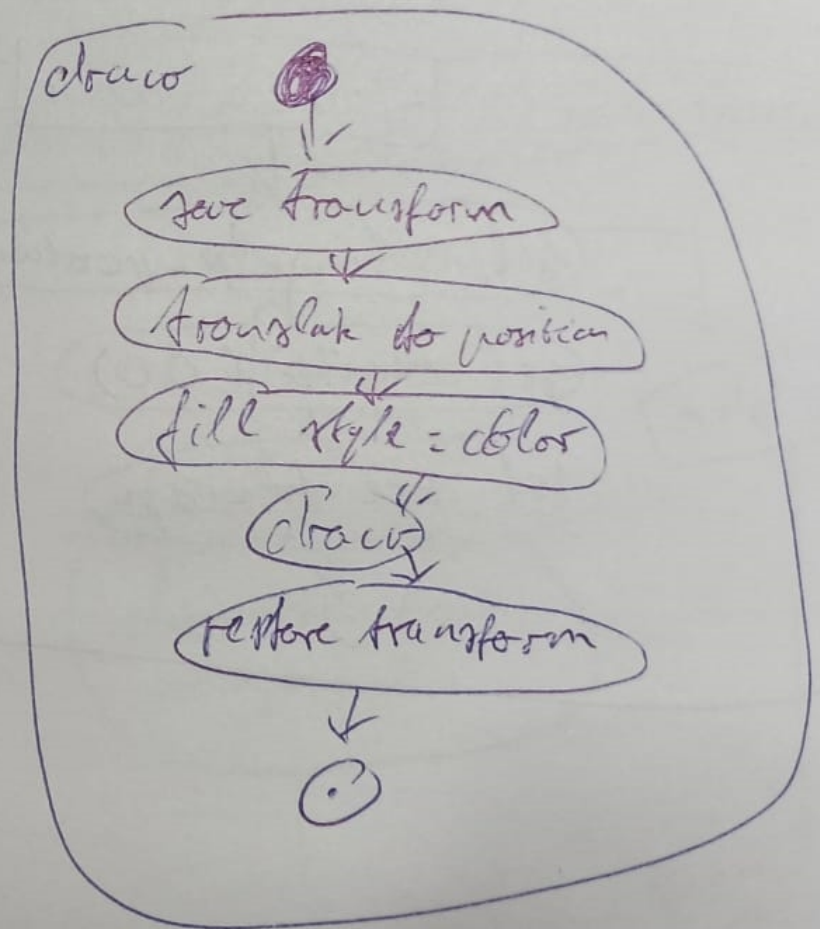 draw
save transform
translate to position
fill style = color
draw
restore transform